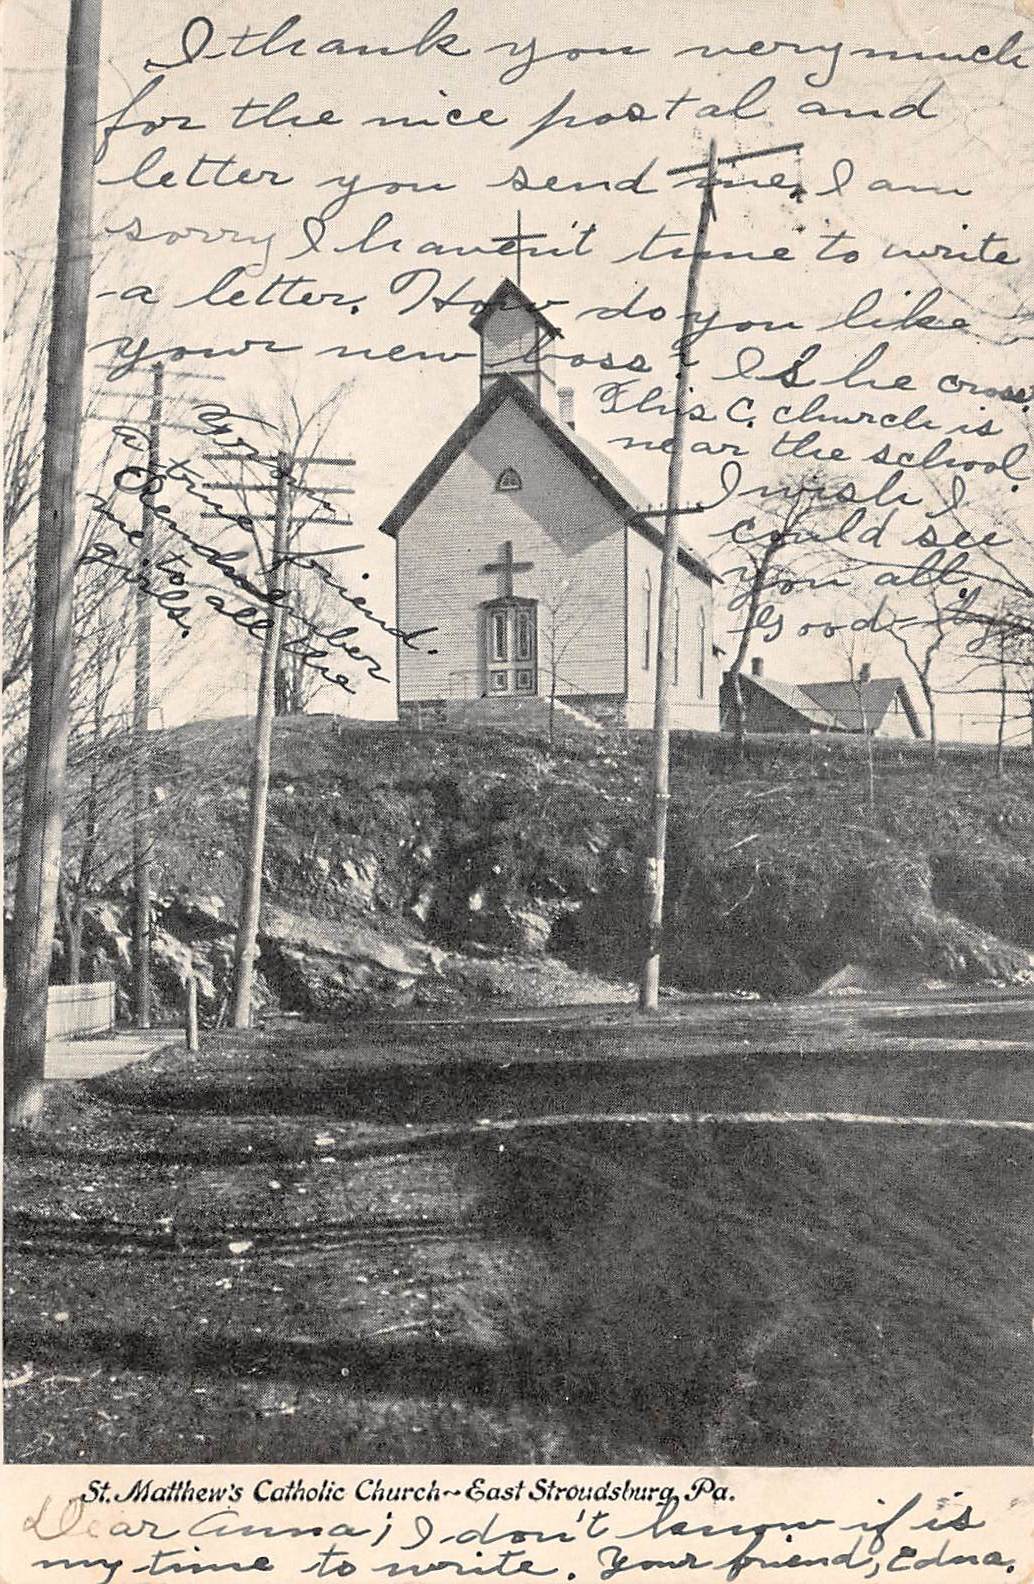 I thank you very much
for the nice postal and
letter you send me. I am
sorry I haven't time to write
a letter. How do you like
your new boss? Is he cross?
This C. church is
near the school.
I wish I
could see
you all.
Good-by
From
a true friend.
Remember
me to all the
girls.
St. Matthew's Catholic Church~East Stroudsburg, Pa.
Dear Anna; I don't know if is
my time to write. Your friend, Edna.